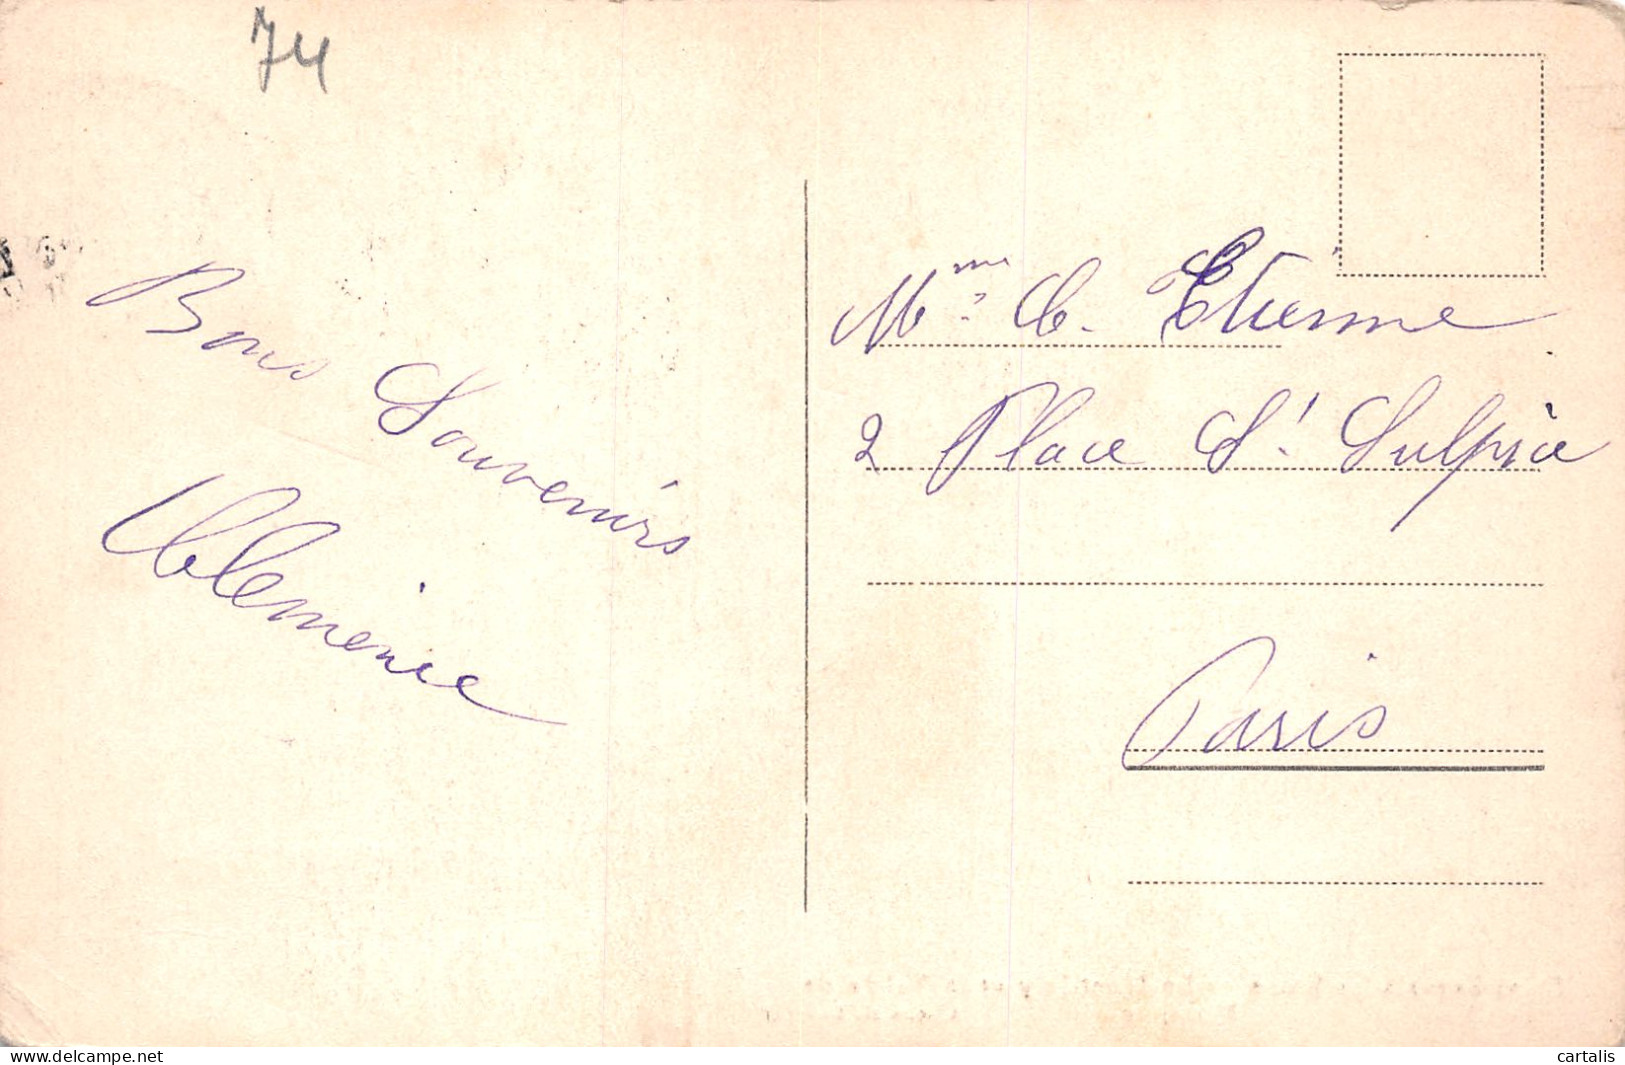 74
Bons Souvenirs
Clemence
Mme C. Etienne
2 Place St Sulpice
Paris
www.delcampe.net
cartalis